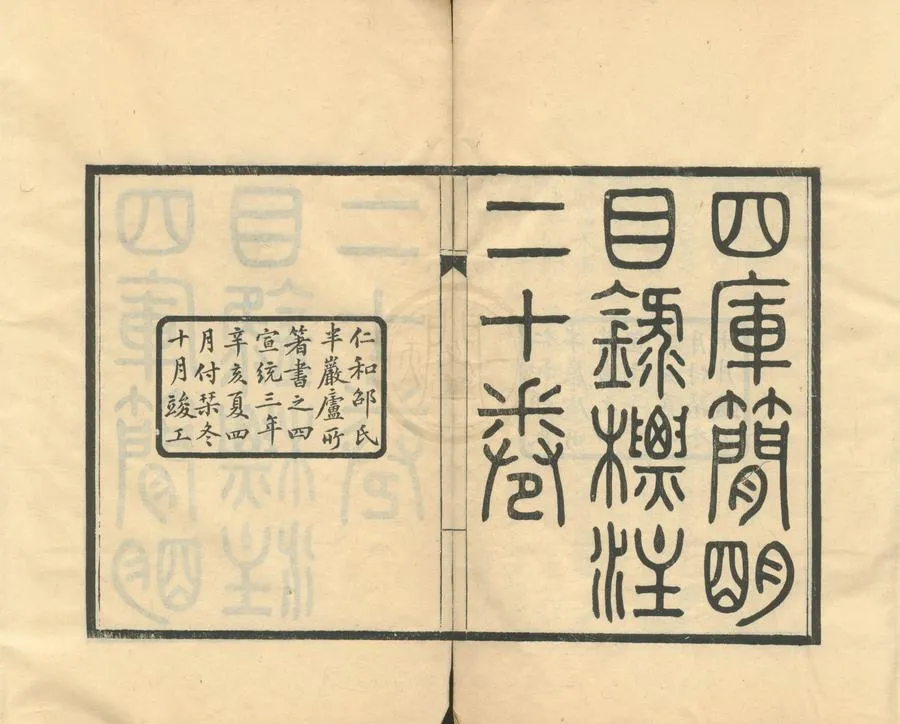 四庫簡明
目錄標注
二十卷
仁和邵氏
半巖廬所
箸書之四
宣統三年
辛亥夏四
月付棻冬
十月竣工